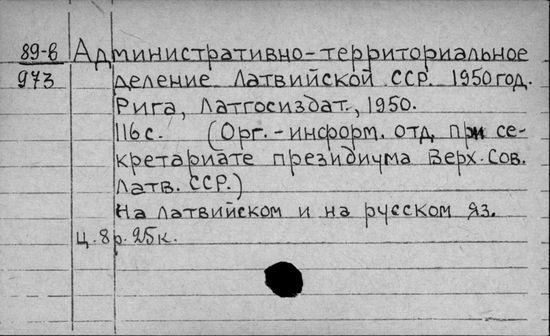 89-в
973
Административно-территориальное
деление Латвийской ССР. 1950 год.
Рига, Латгосиздат, 1950.
116 с. (Орг.-информ. отд. при се-
кретариате президиума Верх. Сов.
Латв. ССР.)
На латвийском и на русском яз.
Ц. 8 р. 25 к.